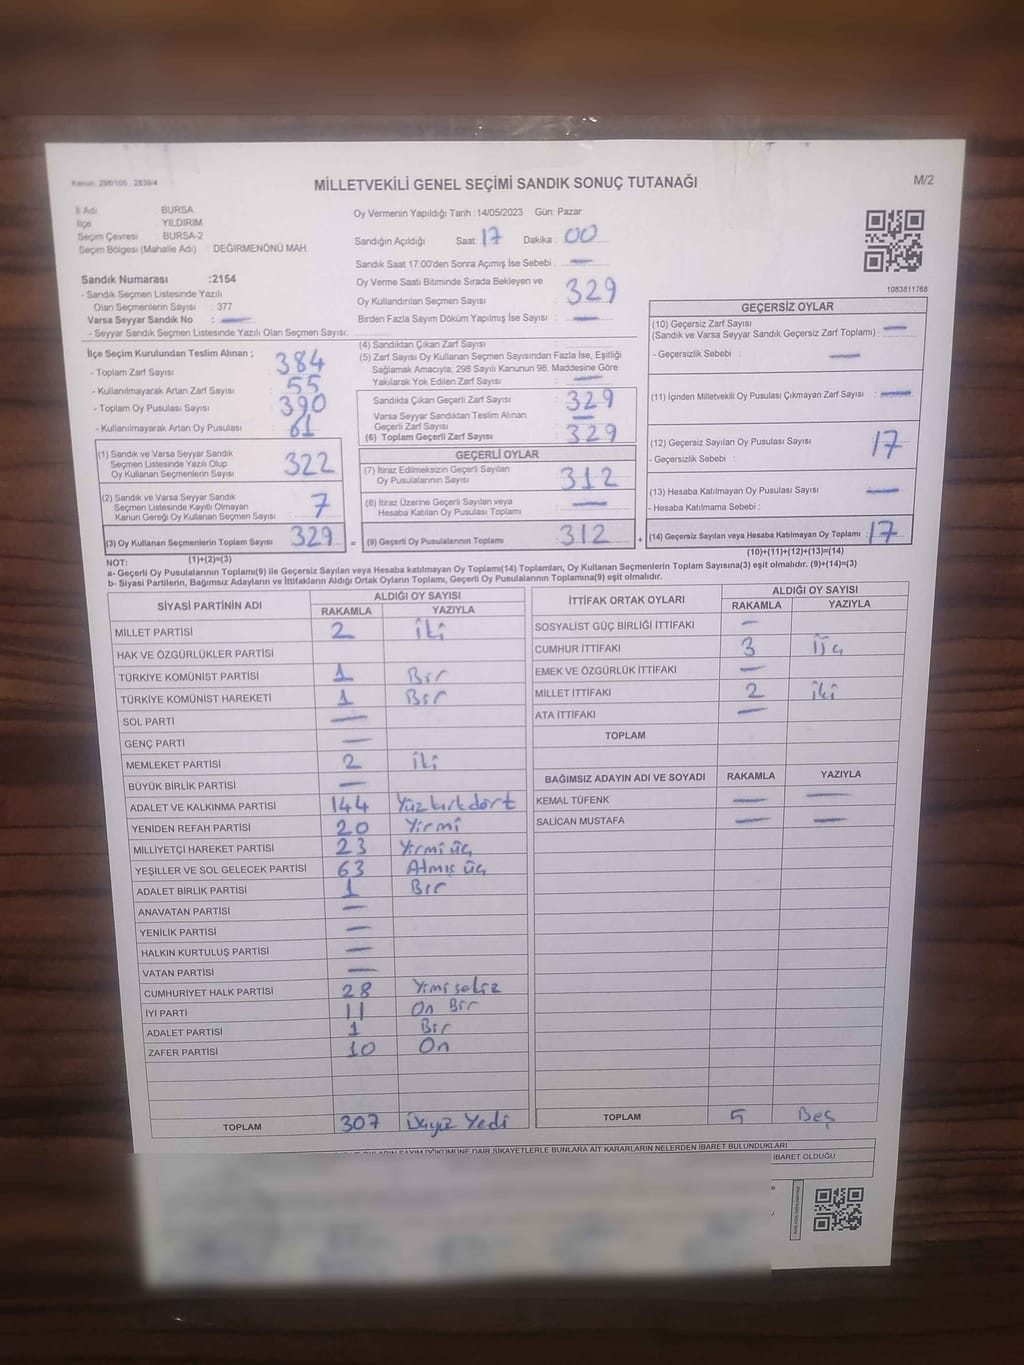 Kanun, 298/105 , 2839/4
MİLLETVEKİLİ GENEL SEÇİMİ SANDIK SONUÇ TUTANAĞI
M/2
İl Adı : BURSA
İlçe : YILDIRIM
Seçim Çevresi : BURSA-2
Seçim Bölgesi (Mahalle Adı) : DEĞİRMENÖNÜ MAH.
Sandık Numarası :2154
- Sandık Seçmen Listesinde Yazılı
Olan Seçmenlerin Sayısı : 377
Varsa Seyyar Sandık No : —
- Seyyar Sandık Seçmen Listesinde Yazılı Olan Seçmen Sayısı:
Oy Vermenin Yapıldığı Tarih :14/05/2023 Gün: Pazar
Sandığın Açıldığı Saat: 17 Dakika : 00
Sandık Saat 17:00'den Sonra Açılmış İse Sebebi : —
Oy Verme Saati Bitiminde Sırada Bekleyen ve
Oy Kullandırılan Seçmen Sayısı : 329
Birden Fazla Sayım Döküm Yapılmış İse Sayısı : —
1083811768
İlçe Seçim Kurulundan Teslim Alınan ;
- Toplam Zarf Sayısı : 384
- Kullanılmayarak Artan Zarf Sayısı : 55
- Toplam Oy Pusulası Sayısı : 390
- Kullanılmayarak Artan Oy Pusulası : 61
(1) Sandık ve Varsa Seyyar Sandık
Seçmen Listesinde Yazılı Olup
Oy Kullanan Seçmenlerin Sayısı : 322
(2) Sandık ve Varsa Seyyar Sandık
Seçmen Listesinde Kayıtlı Olmayan
Kanun Gereği Oy Kullanan Seçmen Sayısı : 7
(3) Oy Kullanan Seçmenlerin Toplam Sayısı : 329 =
(1)+(2)=(3)
(4) Sandıktan Çıkan Zarf Sayısı :
(5) Zarf Sayısı Oy Kullanan Seçmen Sayısından Fazla İse, Eşitliği
Sağlamak Amacıyla, 298 Sayılı Kanunun 98. Maddesine Göre
Yakılarak Yok Edilen Zarf Sayısı : —
Sandıkta Çıkan Geçerli Zarf Sayısı : 329
Varsa Seyyar Sandıktan Teslim Alınan
Geçerli Zarf Sayısı : —
(6) Toplam Geçerli Zarf Sayısı : 329
GEÇERLİ OYLAR
(7) İtiraz Edilmeksizin Geçerli Sayılan
Oy Pusulalarının Sayısı : 312
(8) İtiraz Üzerine Geçerli Sayılan veya
Hesaba Katılan Oy Pusulası Toplamı : —
(9) Geçerli Oy Pusulalarının Toplamı : 312 +
GEÇERSİZ OYLAR
(10) Geçersiz Zarf Sayısı
(Sandık ve Varsa Seyyar Sandık Geçersiz Zarf Toplamı) : —
- Geçersizlik Sebebi : —
(11) İçinden Milletvekili Oy Pusulası Çıkmayan Zarf Sayısı : —
(12) Geçersiz Sayılan Oy Pusulası Sayısı : 17
- Geçersizlik Sebebi :
(13) Hesaba Katılmayan Oy Pusulası Sayısı : —
- Hesaba Katılmama Sebebi :
(14) Geçersiz Sayılan veya Hesaba Katılmayan Oy Toplamı : 17
(10)+(11)+(12)+(13)=(14)
NOT:
a- Geçerli Oy Pusulalarının Toplamı(9) ile Geçersiz Sayılan veya Hesaba katılmayan Oy Toplamı(14) Toplamları, Oy Kullanan Seçmenlerin Toplam Sayısına(3) eşit olmalıdır. (9)+(14)=(3)
b- Siyasi Partilerin, Bağımsız Adayların ve İttifakların Aldığı Ortak Oyların Toplamı, Geçerli Oy Pusulalarının Toplamına(9) eşit olmalıdır.
SİYASİ PARTİNİN ADI ALDIĞI OY SAYISI
RAKAMLA YAZIYLA
MİLLET PARTİSİ 2 İki
HAK VE ÖZGÜRLÜKLER PARTİSİ
TÜRKİYE KOMÜNİST PARTİSİ 1 Bir
TÜRKİYE KOMÜNİST HAREKETİ 1 Bir
SOL PARTİ —
GENÇ PARTİ —
MEMLEKET PARTİSİ 2 İki
BÜYÜK BİRLİK PARTİSİ —
ADALET VE KALKINMA PARTİSİ 144 Yüzkırkdört
YENİDEN REFAH PARTİSİ 20 Yirmi
MİLLİYETÇİ HAREKET PARTİSİ 23 Yirmi üç
YEŞİLLER VE SOL GELECEK PARTİSİ 63 Atmış üç
ADALET BİRLİK PARTİSİ 1 Bir
ANAVATAN PARTİSİ —
YENİLİK PARTİSİ —
HALKIN KURTULUŞ PARTİSİ —
VATAN PARTİSİ —
CUMHURİYET HALK PARTİSİ 28 Yirmi sekiz
İYİ PARTİ 11 On Bir
ADALET PARTİSİ 1 Bir
ZAFER PARTİSİ 10 On
TOPLAM 307 Üçyüz Yedi
İTTİFAK ORTAK OYLARI ALDIĞI OY SAYISI
RAKAMLA YAZIYLA
SOSYALİST GÜÇ BİRLİĞİ İTTİFAKI —
CUMHUR İTTİFAKI 3 Üç
EMEK VE ÖZGÜRLÜK İTTİFAKI —
MİLLET İTTİFAKI 2 İki
ATA İTTİFAKI —
TOPLAM
BAĞIMSIZ ADAYIN ADI VE SOYADI RAKAMLA YAZIYLA
KEMAL TÜFENK — —
SALİCAN MUSTAFA — —
TOPLAM 5 Beş
SAYIM DÖKÜMÜNE DAİR ŞİKAYETLERLE BUNLARA AİT KARARLARIN NELERDEN İBARET BULUNDUKLARI
İBARET OLDUĞU